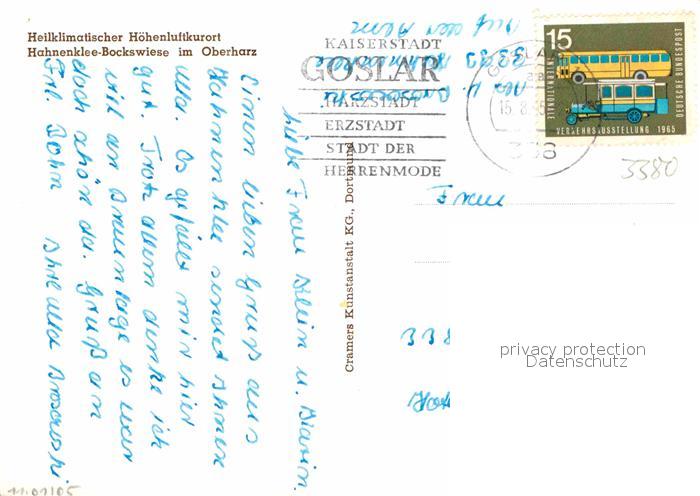 Heilklimatischer Höhenluftkurort
Hahnenklee-Bockswiese im Oberharz
KAISERSTADT
GOSLAR
HARZSTADT
ERZSTADT
STADT DER
HERRENMODE
15
DEUTSCHE BUNDESPOST
INTERNATIONALE
VERKEHRSAUSSTELLUNG 1965
15.8.65
338
3380
Liebe Frau Klein u.
Einen lieben Gruß aus
Hahnenklee sendet Ihnen
Ulla. Es gefällt mir hier
gut. Trotz allem denke ich
viel an Braunlage es war
doch schön da. Gruß an
Frl. Dohn Ihre Ulla
3393
Auf der
Frau
338
Cramers Kunstanstalt KG., Dortmund
privacy protection
Datenschutz
11.01/05